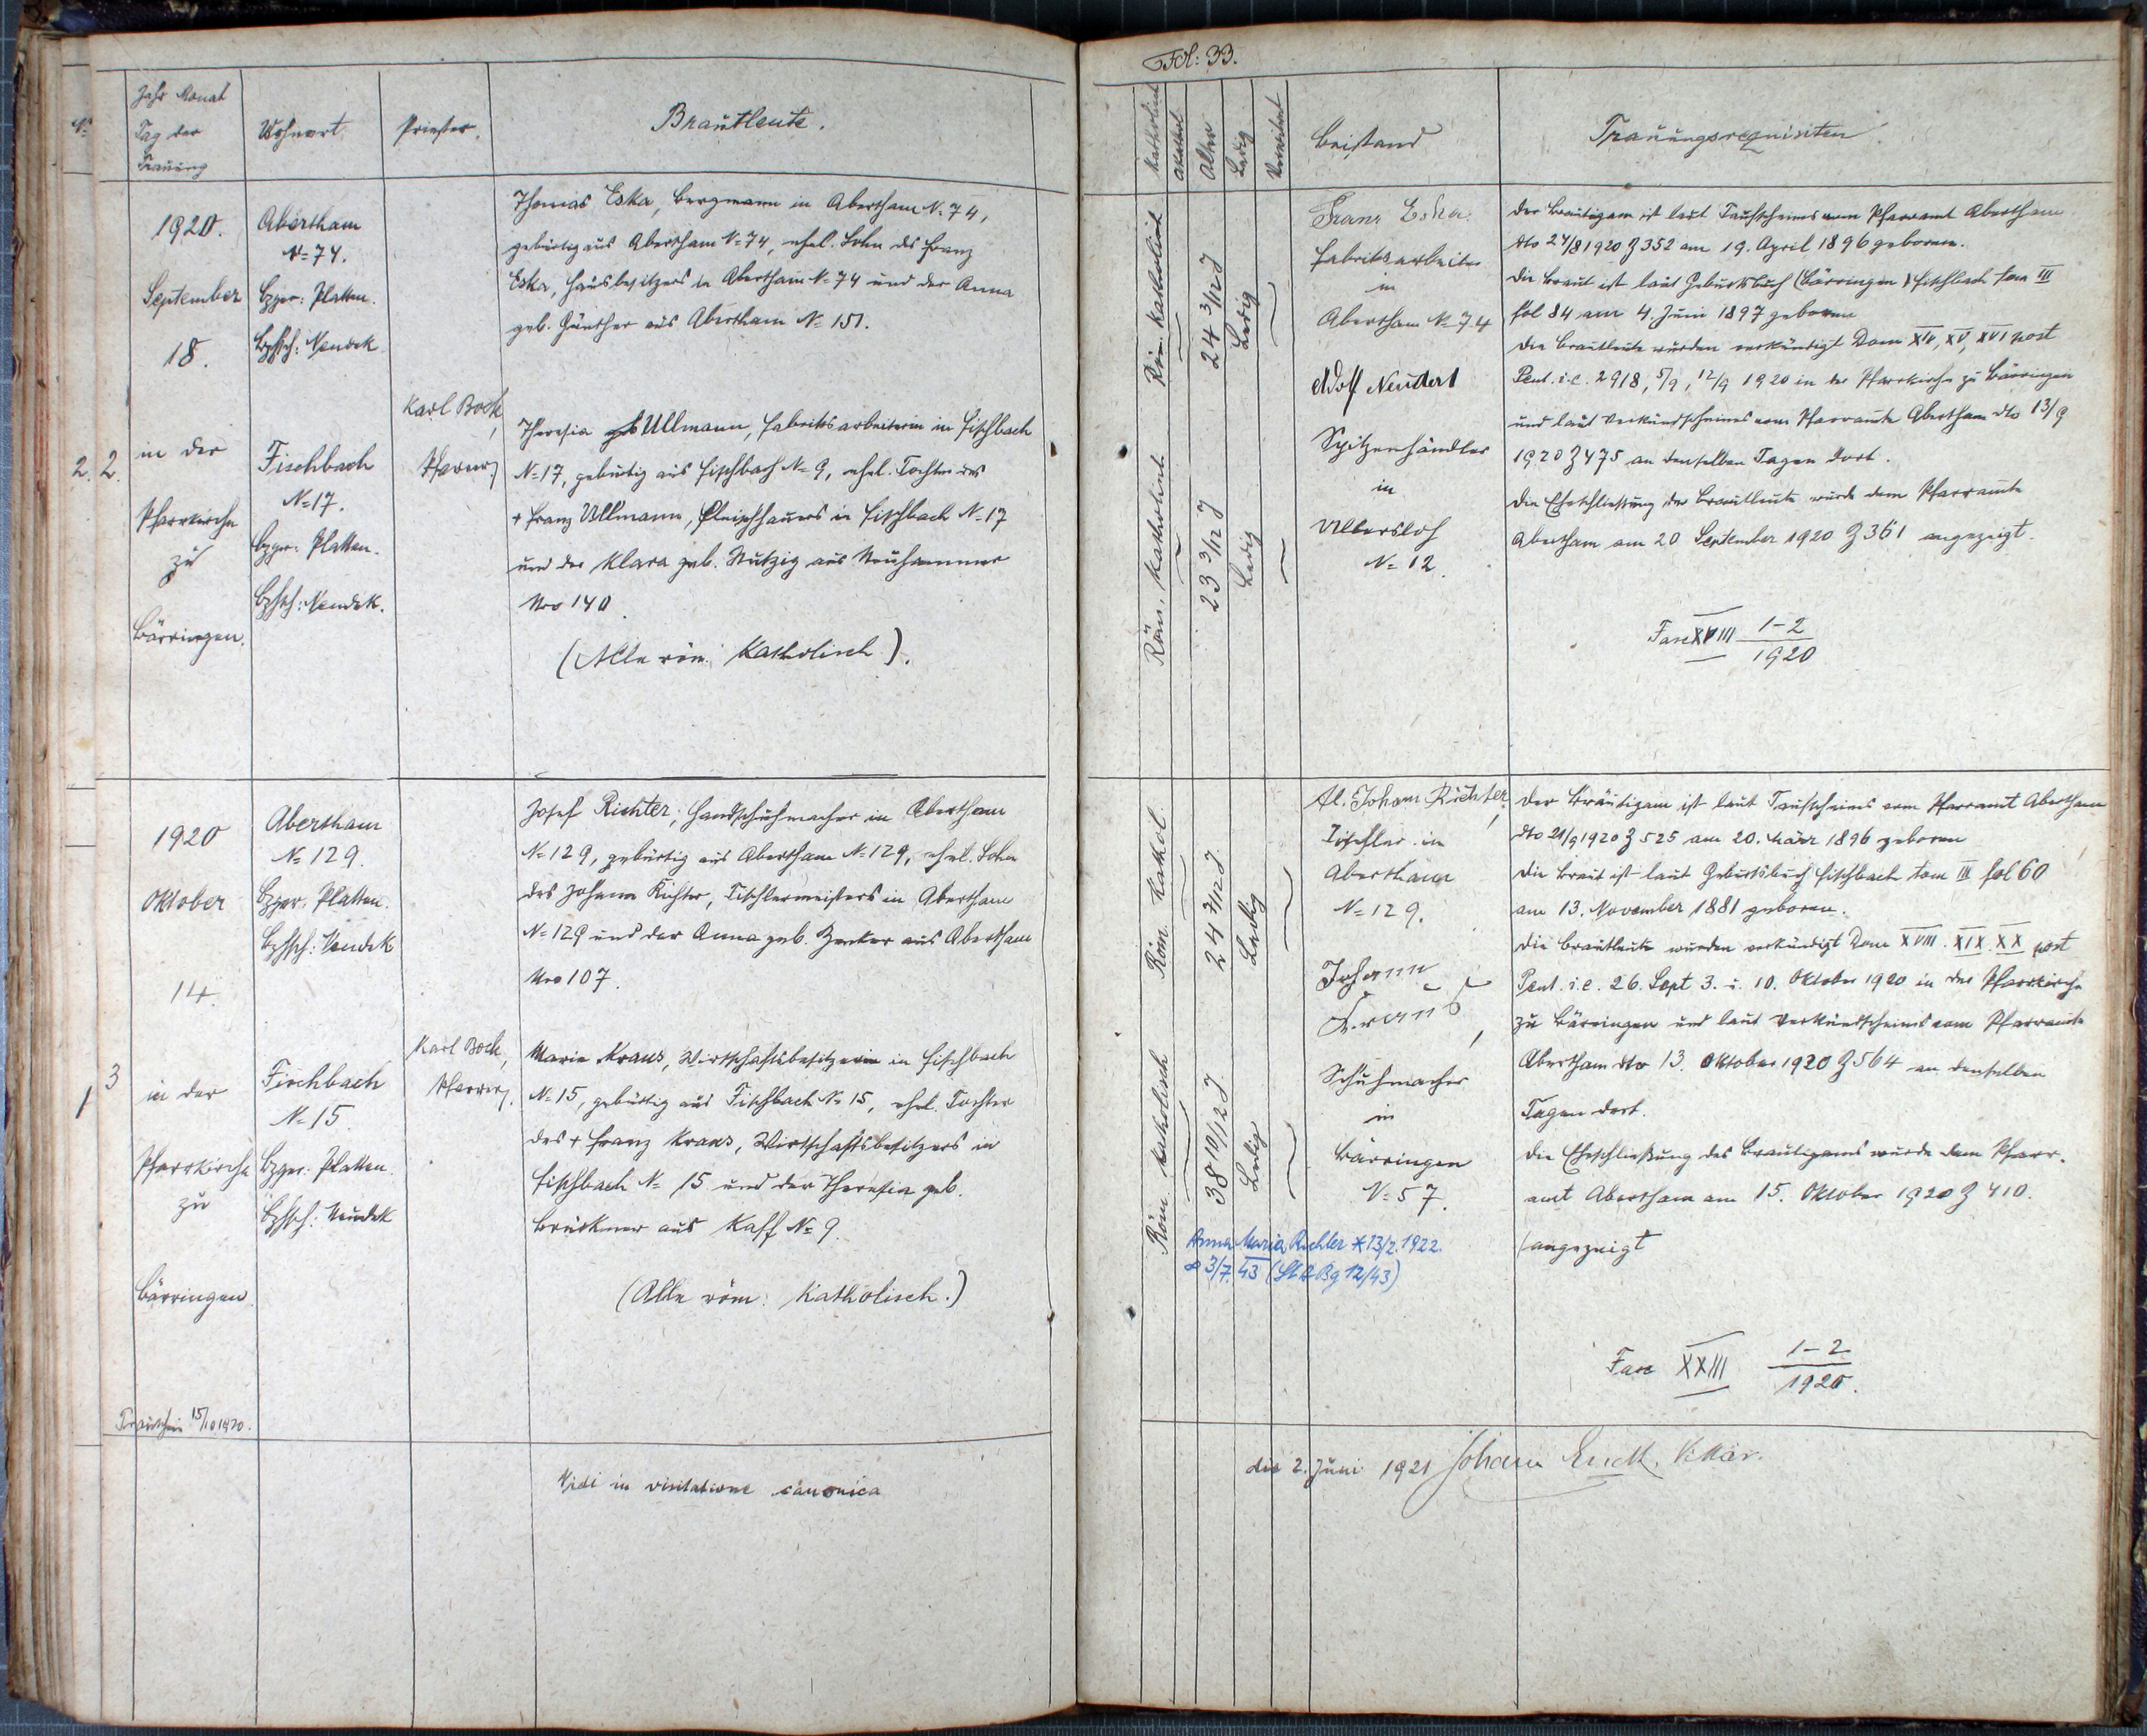 Fol: 33.
No
Jahr Monat
Tag der
Trauung
Wohnort
Priester.
Brautleute.
Katholisch
Akathol
Alter
Ledig
Verwitwet
Beistand
Trauungsrequisiten
2. 2.
1920.
September
18.
in der
Pfarrkirche
zu
Bärringen.
Abertham
No 74.
Bzger: Platten.
Bzhsch: Neudek
Fischbach
No 17.
Bzger: Platten.
Bzhsch: Neudek.
Karl Bock,
Pfarrer
Thomas Eska, Bergmann in Abertham No 74,
gebürtig aus Abertham No 74, ehel. Sohn des Franz
Eska, Hausbesitzers in Abertham No 74 und der Anna
geb. Günther aus Abertham No 151.
Theresia Ullmann, Fabriksarbeiterin in Fischbach
No 17, gebürtig aus Fischbach No 9, ehel. Tochter des
+ Franz Ullmann, Fleischhauers in Fischbach No 17
und der Klara geb. Stutzig aus Neuhammer
Nro 140.
(Alle röm. Katholisch).
Röm. Katholisch
24 3/12 J
Ledig
Röm. Katholisch
23 3/12 J
Ledig
Franz Eska
Fabriksarbeiter
in
Abertham No 74
Adolf Neudert
Spitzenhändler
in
Ullersloh
No 12.
Der Bräutigam ist laut Taufscheines vom Pfarramt Abertham
dto 24/8 1920 Z 352 am 19. April 1896 geboren.
Die Braut ist laut Geburtsbuch (Bärringen) Fischbach tom III
fol 84 am 4. Juni 1897 geboren
Die Brautleute wurden verkündigt Dom XIV, XV, XVI post
Pent. i.e. 29/8, 5/9, 12/9 1920 in der Pfarrkirche zu Bärringen
und laut Verkündscheines vom Pfarramte Abertham dto 13/9
1920 Z 475 an denselben Tagen dort.
Die Eheschließung der Brautleute wurde dem Pfarramte
Abertham am 20 September 1920 Z 361 angezeigt.
Fasc XVIII 1-2
1920
1 3
1920
Oktober
14.
in der
Pfarrkirche
zu
Bärringen
Trauschein 15/10 1920.
Abertham
No 129.
Bzger. Platten.
Bzhsch: Neudek
Fischbach
No 15.
Bzger: Platten.
Bzhsch: Neudek
Karl Bock,
Pfarrer.
Josef Richter, Handschuhmacher in Abertham
No 129, gebürtig aus Abertham No 129, ehel. Sohn
des Johann Richter, Tischlermeisters in Abertham
No 129 und der Anna geb. Zenker aus Abertham
Nro 107.
Marie Kraus, Wirtschaftsbesitzerin in Fischbach
No 15, gebürtig aus Fischbach No 15, ehel. Tochter
des + Franz Kraus, Wirtschaftsbesitzers in
Fischbach No 15 und der Theresia geb.
Brückner aus Kaff No 9.
(Alle röm: Katholisch.)
Röm. Kathol.
24 7/12 J.
Ledig
Röm katholisch
38 10/12 J
Ledig
Johann Richter,
Tischler in
Abertham
No 129.
Johann
Schuhmacher
in
Bärringen
No 57.
Anna Maria Richter * 13/2. 1922.
∞ 3/7. 43 (St A Bg 12/43)
Der Bräutigam ist laut Taufscheines vom Pfarramt Abertham
dto 21/9 1920 Z 525 am 20. März 1896 geboren
Die Braut ist laut Geburtsbuch Fischbach tom III fol 60
am 13. November 1881 geboren.
Die Brautleute wurden verkündigt Dom XVIII. XIX. XX post
Pent. i.e. 26. Sept 3. u. 10. Oktober 1920 in der Pfarrkirche
zu Bärringen und laut Verkündscheines vom Pfarramte
Abertham dto 13. Oktober 1920 Z 564 an denselben
Tagen dort.
Die Eheschließung des Bräutigams wurde dem Pfarr-
amt Abertham am 15. Oktober 1920 Z 410.
angezeigt
Fasc XXIII 1-2
1920.
Vidi in visitatione canonica
die 2. Juni 1921 Johann Vikär.